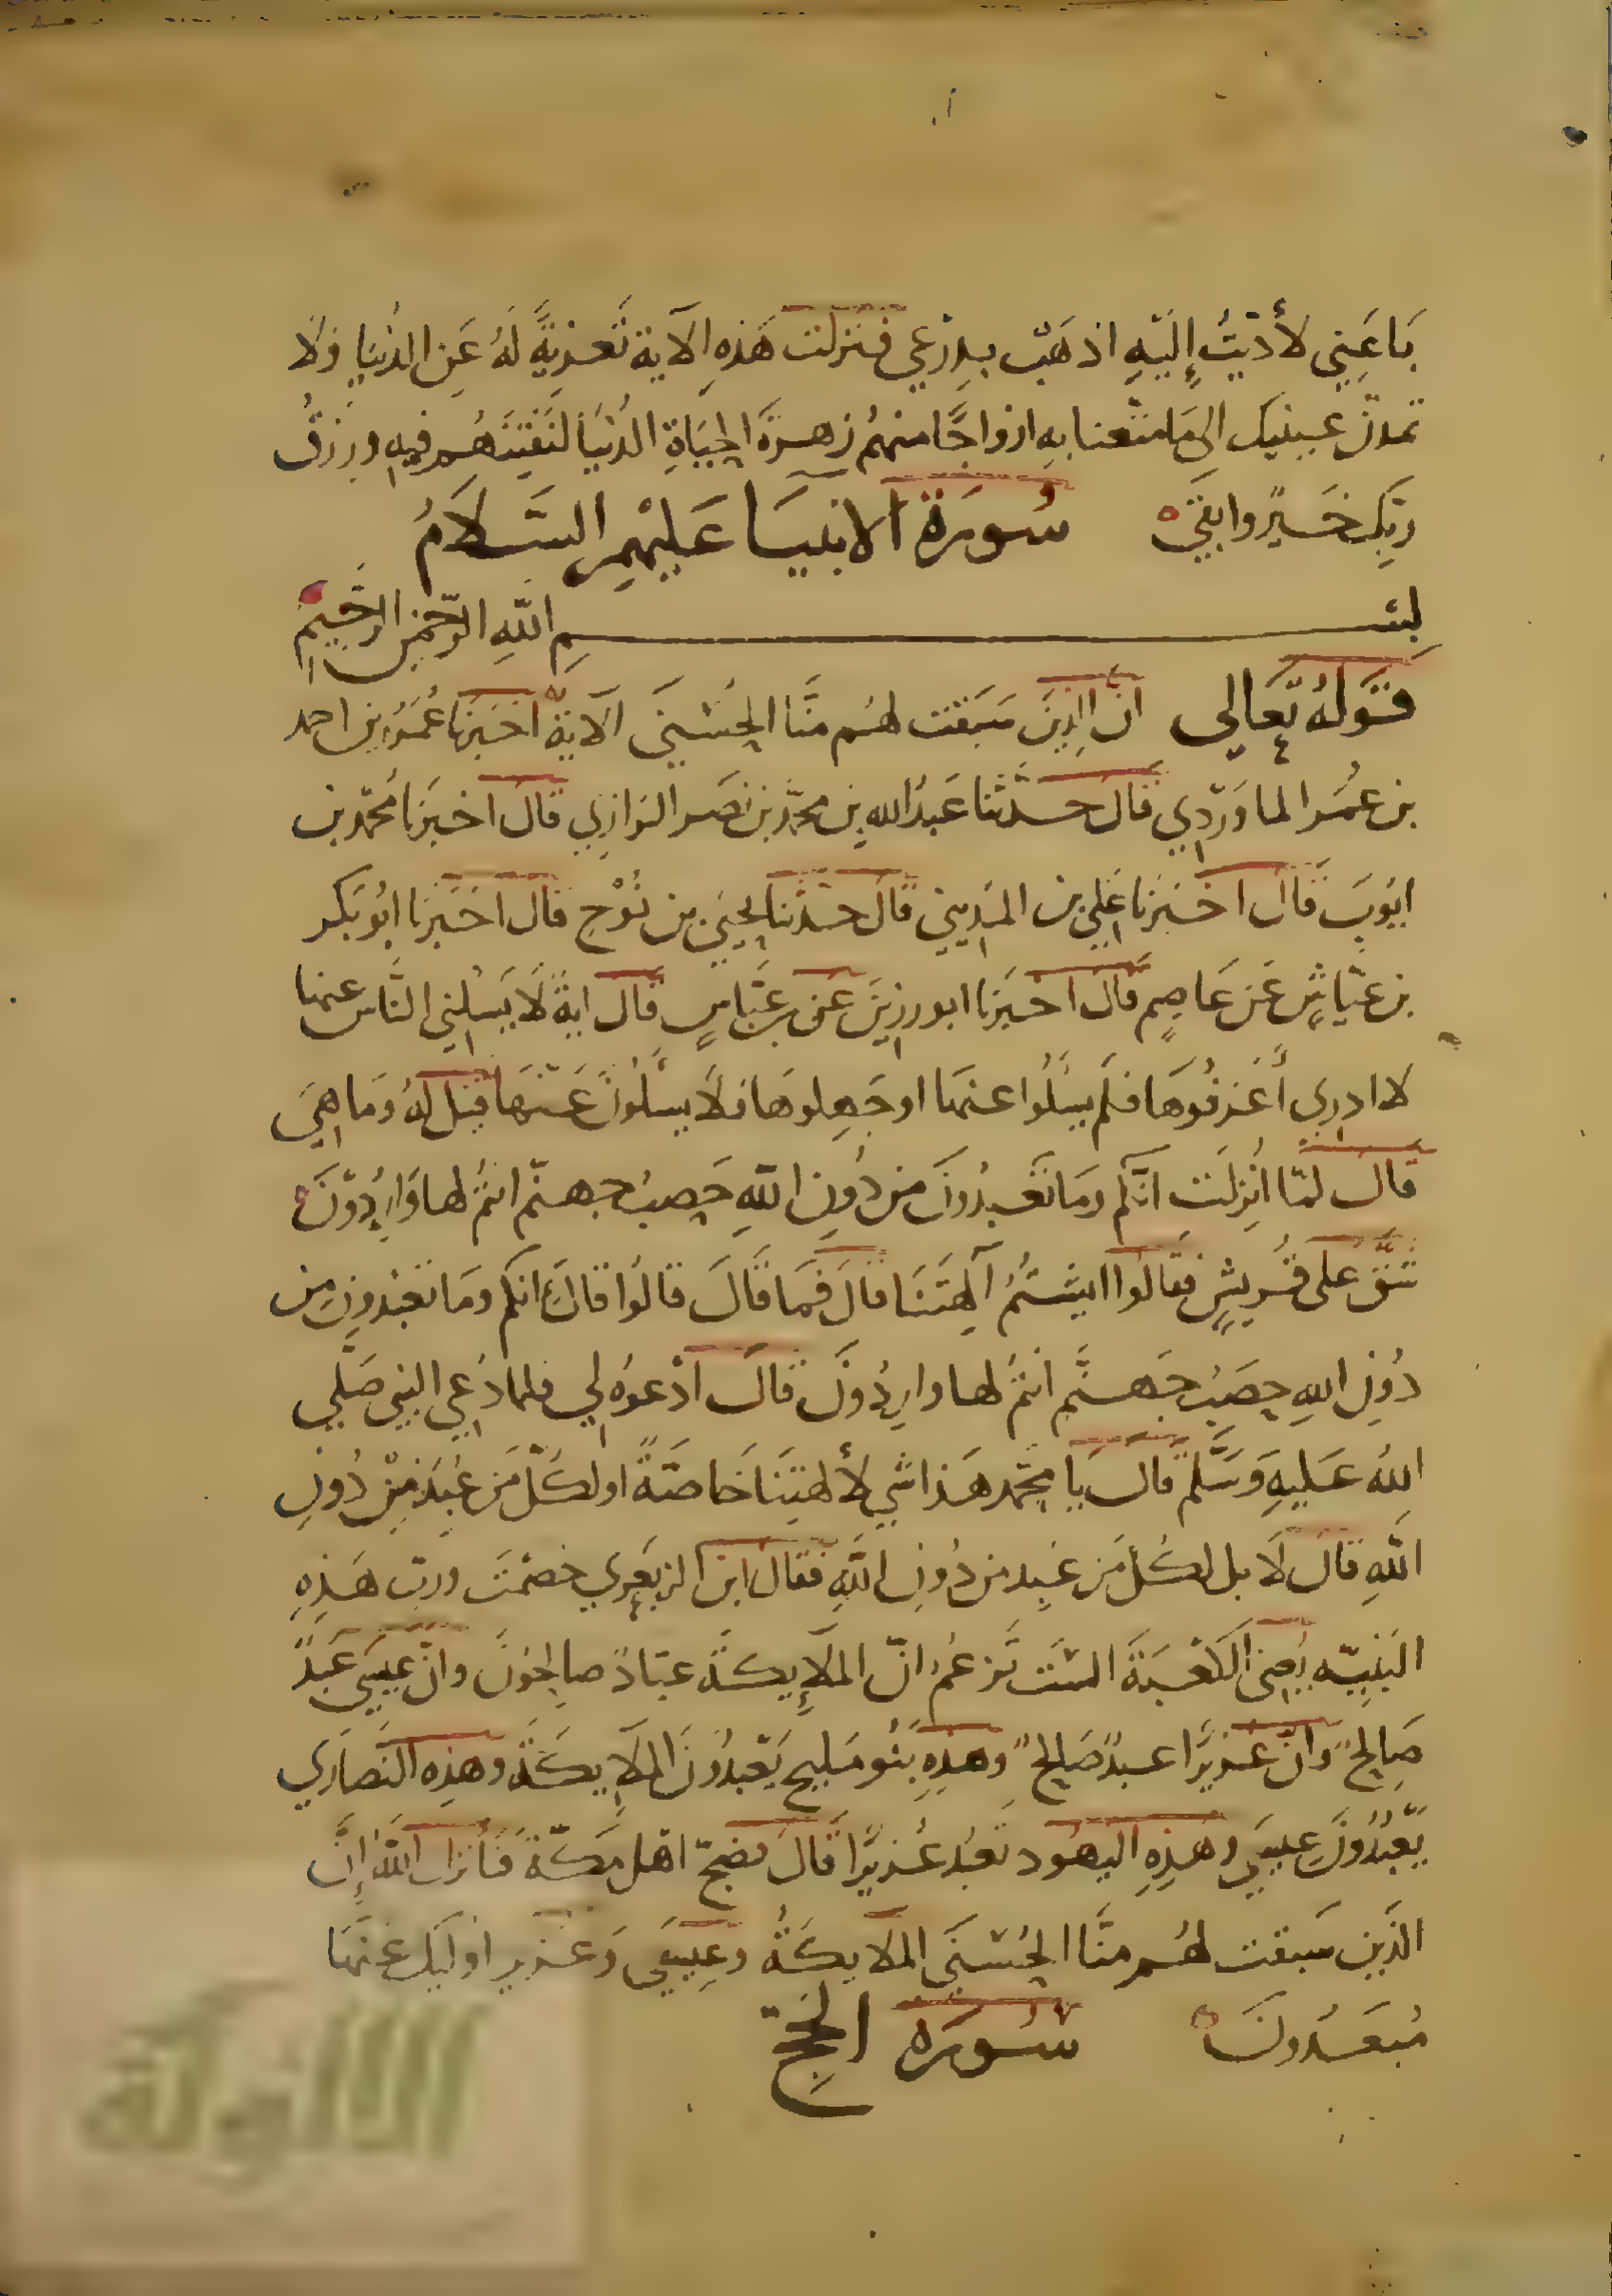 بَاعَنِي لأدّيْتُ إِلَيْهِ اذهَبْ بدِرْعِي فنزلت هَذِهِ الآية تَعْزِيَةً لَهُ عَنِ الدُّنيَا وَلَا
تمدنّ عينيك الى مَا متّعنا بِهِ ازواجًا منهُم زهرَةَ الحيَاةِ الدُنيَا لنَفتِنَهُم فيهِ ورِزقُ
ربّك خَيْرٌ وابقَى سُورَة الانبيَا عَليْهِم السَّلَامُ
بِسْمِ اللَّهِ الرّحمَنِ الرَّحِيمِ
قَولهُ تَعَالى انَّ الذِينَ سَبَقَت لهُم منَّا الحُسْنَى الآية اخبَرَنا عُمَرُ بن احمد
بن عُمَر الماوَرْدِي قالَ حَدَّثَنا عَبدُ الله بن محمَّد بن نصَر الرازِي قالَ اخبَرَنا محمّد بن
ايّوبَ قَالَ اخبَرَنا عَلِي بن المدِينِي قالَ حَدثَنا يحيَى بن نُوْح قالَ اخبَرَنا ابُو بَكر
بن عيّاشٍ عَن عَاصِم قَالَ اخبَرَنا ابو رزِين عَن بن عَبّاسٍ قَالَ ايةً لَا يَسْلني النَّاس عنها
لا ادرِي أعَرَفُوهَا فلَم يسْلُوا عنهَا او جَهِلوهَا فلَا يسْلُونَ عَنهَا قيل لهُ ومَا هِيَ
قالَ لمّا انُزِلَت انّكم ومَا تَعبدُونَ من دُونِ اللَّهِ حَصبُ جهنّم انتُم لها وَارِدُونَ
شَقَّ عَلى قُريشٍ فقَالُوا ايشتُمُ آلهَتَنَا قالَ فمَا قَالَ قالُوا قالَ انكم ومَا تعبُدُونِ مِن
دُونِ اللهِ حصَبُ جَهنَّم انتُم لها وارِدُونَ قالَ ادْعوُه لِي فلما دُعِي النبي صَلّى
اللهُ عَليهِ وَسَّلم قَالَ يَا محّمد هَذا شي لأ لهتِنَا خَاصَةً او لكُلّ مَن عُبِدَ مِنْ دُونِ
اللَّهِ قَالَ لَا بل لكُل مَن عُبِد من دُونِ اللَّهِ فقال ابن الزبعرى خصمْتَ وربّ هَذِهِ
البَنِيّه يعني الكعْبَةَ الستَ تَزعُم انّ الملَايِكَةَ عبَادٌ صالِحُونَ وانّ عيسَى عَبدٌ
صَالحٌ وانّ عُزيرًا عبدٌ صَالحٌ وهذِهِ بنُو مَليح يَعْبدُونَ الملَايِكَةَ وهذِه النَصَارَى
يَعْبُدُونَ عِيسَى وهَذِهِ اليَهُود تَعبُد عُزيرًا قَالَ فضجّ اهْل مَكّة فَأنزلَ اللَّهُ إِنَّ
الذِين سَبقت لهُم منَّا الحُسْنَى الملَايكَةُ وعِيسَى وَعُزير اولَيكَ عَنهَا
مُبعَدُونَ سُورَه الحَجّ
الألوكة